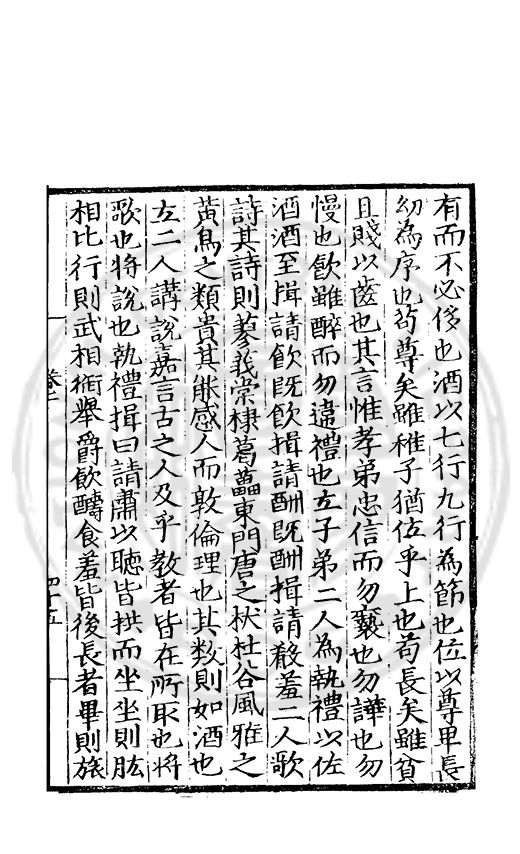 有而不必侈也酒以七行九行為節也位以尊卑長
幼為序也苟尊矣雖稚子猶位乎上也苟長矣雖貧
且賤以齒也其言惟孝弟忠信而勿褻也勿譁也勿
慢也飲雖醉而勿違禮也立子弟二人為執禮以佐
酒酒至揖請飲既飲揖請酬既酬揖請殽羞二人歌
詩其詩則蓼莪棠棣葛藟東門唐之杕杜谷風雅之
黃鳥之類貴其能感人而敦倫理也其数則如酒也
立二人講說嘉言古之人及乎教者皆在所取也將
歌也將說也執禮揖曰請肅以聽皆拱而坐坐則肱
相比行則武相銜舉爵飲醻食羞皆後長者畢則旅
卷之
四十五